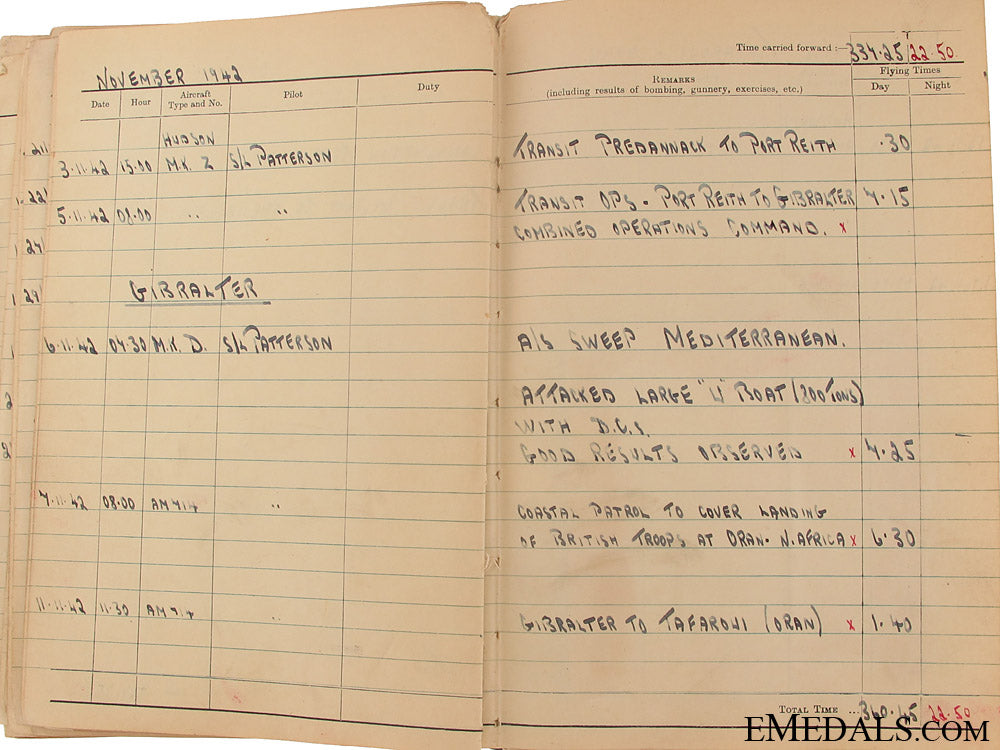 Time carried forward :— 334.25 22.50
NOVEMBER 1942
Date Hour Aircraft Type and No. Pilot Duty
REMARKS
(including results of bombing, gunnery, exercises, etc.)
Flying Times
Day Night
HUDSON
3.11.42 15.00 M.K. Z S/L PATTERSON TRANSIT PREDANNACK TO PORT REITH .30
5.11.42 08.00 " " TRANSIT OPS - PORT REITH TO GIBRALTER 7.15
COMBINED OPERATIONS COMMAND. x
GIBRALTER
6.11.42 04.30 M.K. D. S/L PATTERSON A/S SWEEP MEDITERRANEAN.
ATTACKED LARGE "U" BOAT (800 TONS)
WITH D.C.s.
GOOD RESULTS OBSERVED x 7.25
7.11.42 08.00 AM 714 " COASTAL PATROL TO COVER LANDING
OF BRITISH TROOPS AT ORAN. N. AFRICA x 6.30
11.11.42 11.30 AM 714 GIBRALTER TO TAFAROUI (ORAN) x 1.40
TOTAL TIME ... 22.50
EMEDALS.COM